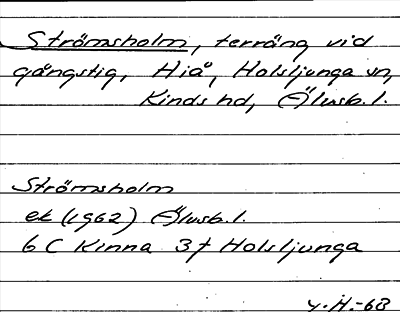 Strömsholm, terräng vid
gångstig, Hiå, Holsljunga sn,
Kinds hd, Älvsb. l.
Strömsholm
ek (1962) Älvsb. l.
6 C Kinna 3f Holsljunga
Y.H.-68